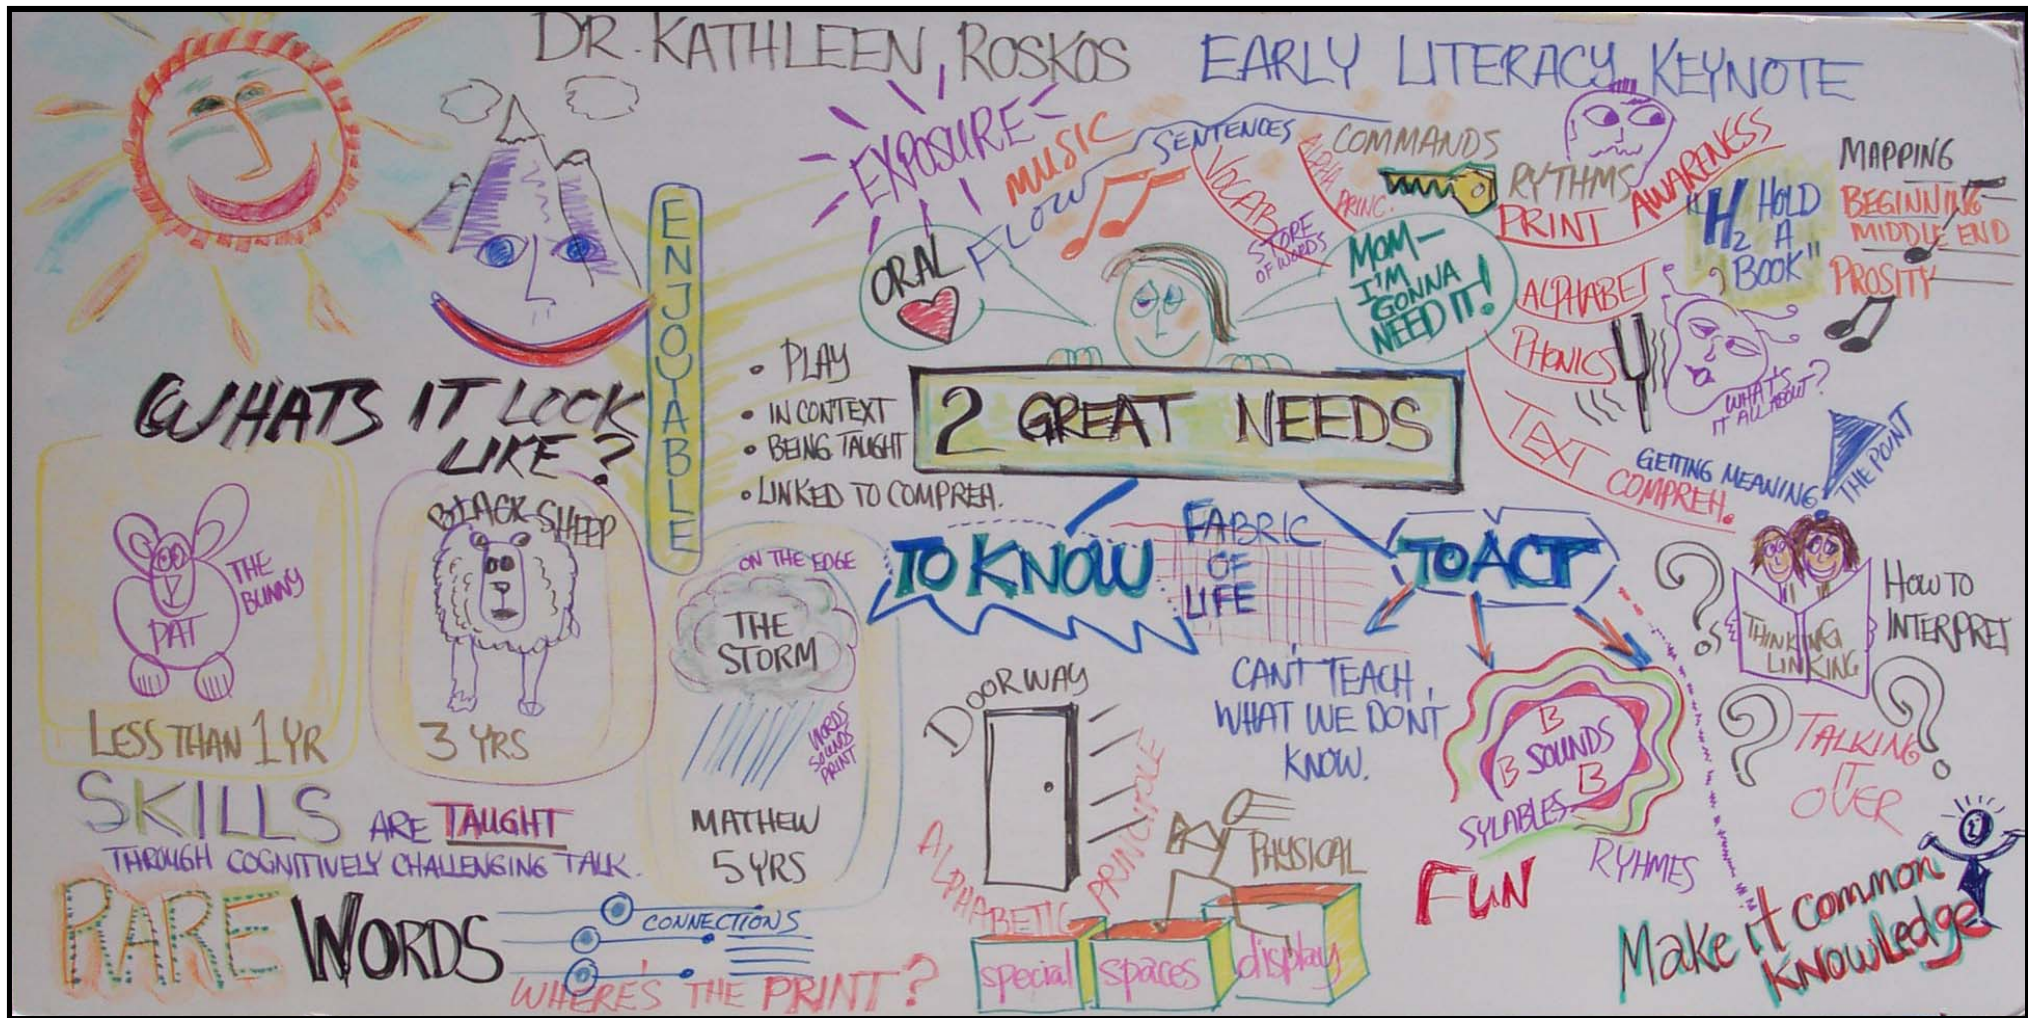 DR. KATHLEEN ROSKOS
EARLY LITERACY KEYNOTE
EXPOSURE
MUSIC
FLOW
SENTENCES
VOCAB
STORE
OF WORDS
ALPHA
PRINC.
COMMANDS
RYTHMS
PRINT AWARENESS
"H2 HOLD
A
BOOK"
MAPPING
BEGINNING
MIDDLE END
PROSITY
ORAL
MOM-
I'M
GONNA
NEED IT!
ALPHABET
PHONICS
WHAT'S
IT ALL ABOUT?
TEXT
COMPREH.
GETTING MEANING
THE POINT
ENJOYABLE
• PLAY
• IN CONTEXT
• BEING TAUGHT
• LINKED TO COMPREH.
2 GREAT NEEDS
WHATS IT LOOK
LIKE?
PAT
THE
BUNNY
LESS THAN 1 YR
BLACK SHEEP
3 YRS
ON THE EDGE
THE
STORM
WORDS
SOUNDS
PRINT
MATHEW
5 YRS
TO KNOW
FABRIC
OF
LIFE
TO ACT
CAN'T TEACH
WHAT WE DONT
KNOW.
DOORWAY
ALPHABETIC PRINCIPLE
PHYSICAL
special
spaces
display
B
B SOUNDS
B
SYLABLES
RYHMES
FUN
THINKING
LINKING
HOW TO
INTERPRET
TALKING
IT
OVER
Make it common
KNOWLedge
SKILLS ARE TAUGHT
THROUGH COGNITIVELY CHALLENGING TALK.
RARE WORDS
CONNECTIONS
WHERE'S THE PRINT?